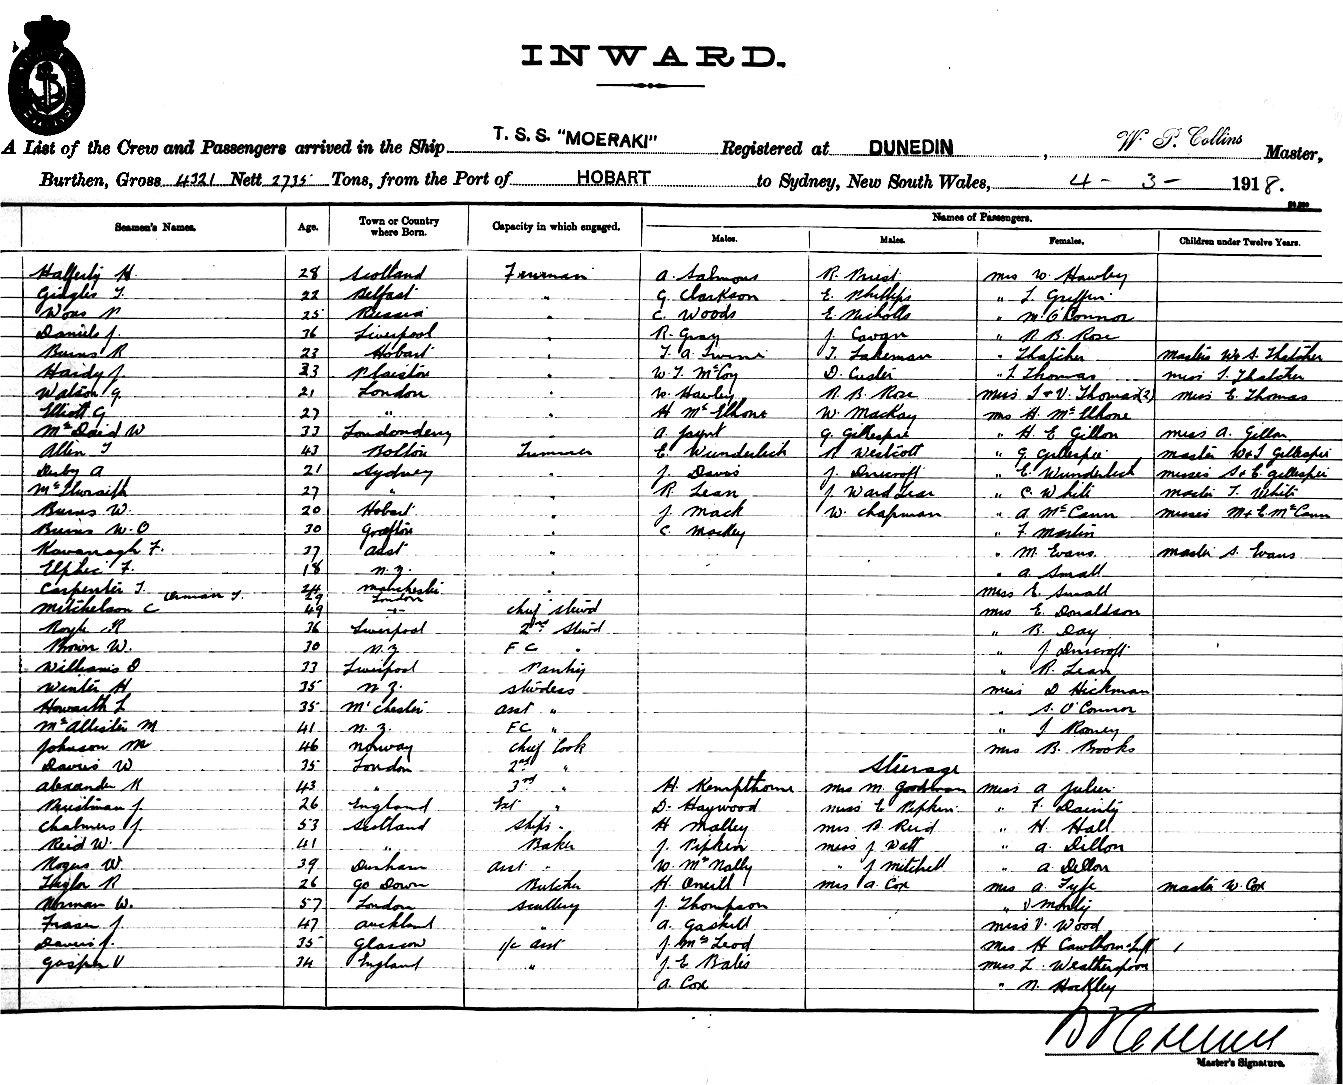 INWARD.
A List of the Crew and Passengers arrived in the Ship T. S. S. "MOERAKI" Registered at DUNEDIN, W. P. Collins Master,
Burthen, Gross 4321 Nett 2735 Tons, from the Port of HOBART to Sydney, New South Wales, 4 - 3 - 1918.
Names of Passengers.
Seamen's Names. Age. Town or Country where Born. Capacity in which engaged. Males. Males. Females. Children under Twelve Years.
Hafferty H. 28 Scotland Fireman A. Salmons R. Priest Mrs W. Hawley
22 Belfast " G. Clarkson E. Phillips " L. Griffin
25 Russia " C. Woods E. Nicholls " M. O'Connor
Daniels J. 36 Liverpool " R. Gray J. Cavan " R. B. Rose
Burns R 23 Hobart " T. A. T. Lakeman " Thatcher Master W. S. Thatcher
Hardy J 33 Plaistow " W. T. McCoy D. Custer " T Thomas Miss T. Thatcher
Watson G 21 London " W. Hawley R. B. Rose Misses T & V. Thomas (2) Miss E. Thomas
Elliott G 27 " " H McElhone W. Mackay Mrs H. McElhone
McDaid W 33 Londonderry " A. G. Gillespie " H E Gillon Miss A. Gillon
Allen T 43 Bolton Trimmer E Wunderlich R Westcott " G Gillespie Master W & T Gillespie
Derby A 21 Sydney " J. Davis J. Driscroft " E. Wunderlich Misses S & E. Gillespie
27 " " R. Lean J Ward Lear " C. White Master T. White
Burns W. 20 Hobart " J. Mack W. Chapman " A McCann Misses M & E McCann
Burns W. O 30 Grafton " C. Mackey " F. Martin
Kavanagh F. 37 Aust " " M. Evans Master S. Evans
Elphic F. 18 N. Z. " " A. Small
Carpenter T. 24 Manchester " Miss E. Small
Orman T. 29 London
Mitchelson C 49 " Chief Steward Mrs E. Donaldson
Royle R 36 Liverpool 2nd Steward " B. Day
Brown W. 30 N. Z F C " " J Driscroft
Williams D 33 Liverpool Pantry " R. Lean
Winter H 35 N. Z. Stewdess Miss D Hickman
Howarth L 35 M'chester Asst " " S. O'Connor
McAllister M 41 N. Z. FC " " J Romey
Johnson M 46 Norway Chief Cook Mrs B. Brooks
Davies W 35 London 2nd " Steerage
Alexander R 43 " 3rd " H. Kempthorne Mrs M. Goodman Miss A Julier
26 England Ext " D. Haywood Miss E Pipkin " F. Dainty
Chalmers J. 53 Scotland Ships " H Malley Mrs B. Reid " H. Hall
Reid W. 41 " Baker J. Pipkin Miss J Watt " A. Dillon
Rogers W 39 Durham Asst " W McNally " J Mitchell " A Dillon
Taylor R 26 Go Down Butcher H. Oneill Mrs A. Cox Mrs A. Fyfe Master W. Cox
Norman W. 57 London Scullery J. Thompson
Fraser J. 47 Auckland " A. Gaskell Miss V. Wood
Davies J. 35 Glasgow 1/c Asst J. McLeod Mrs H Cawthorn
Gosper V 34 England " J. E Bates Miss L. Weatherspoon
A. Cox " N. Hockley
Master's Signature.